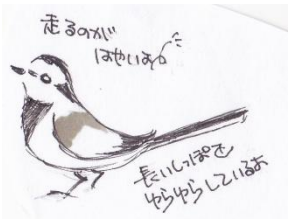 走るのが
はやいお
長いしっぽを
ゆらゆらしているお